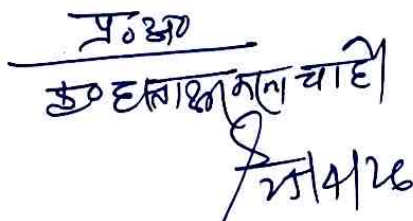 प्र० अ०
कृ० हस्ताक्षर करना चाहें
25/4/26